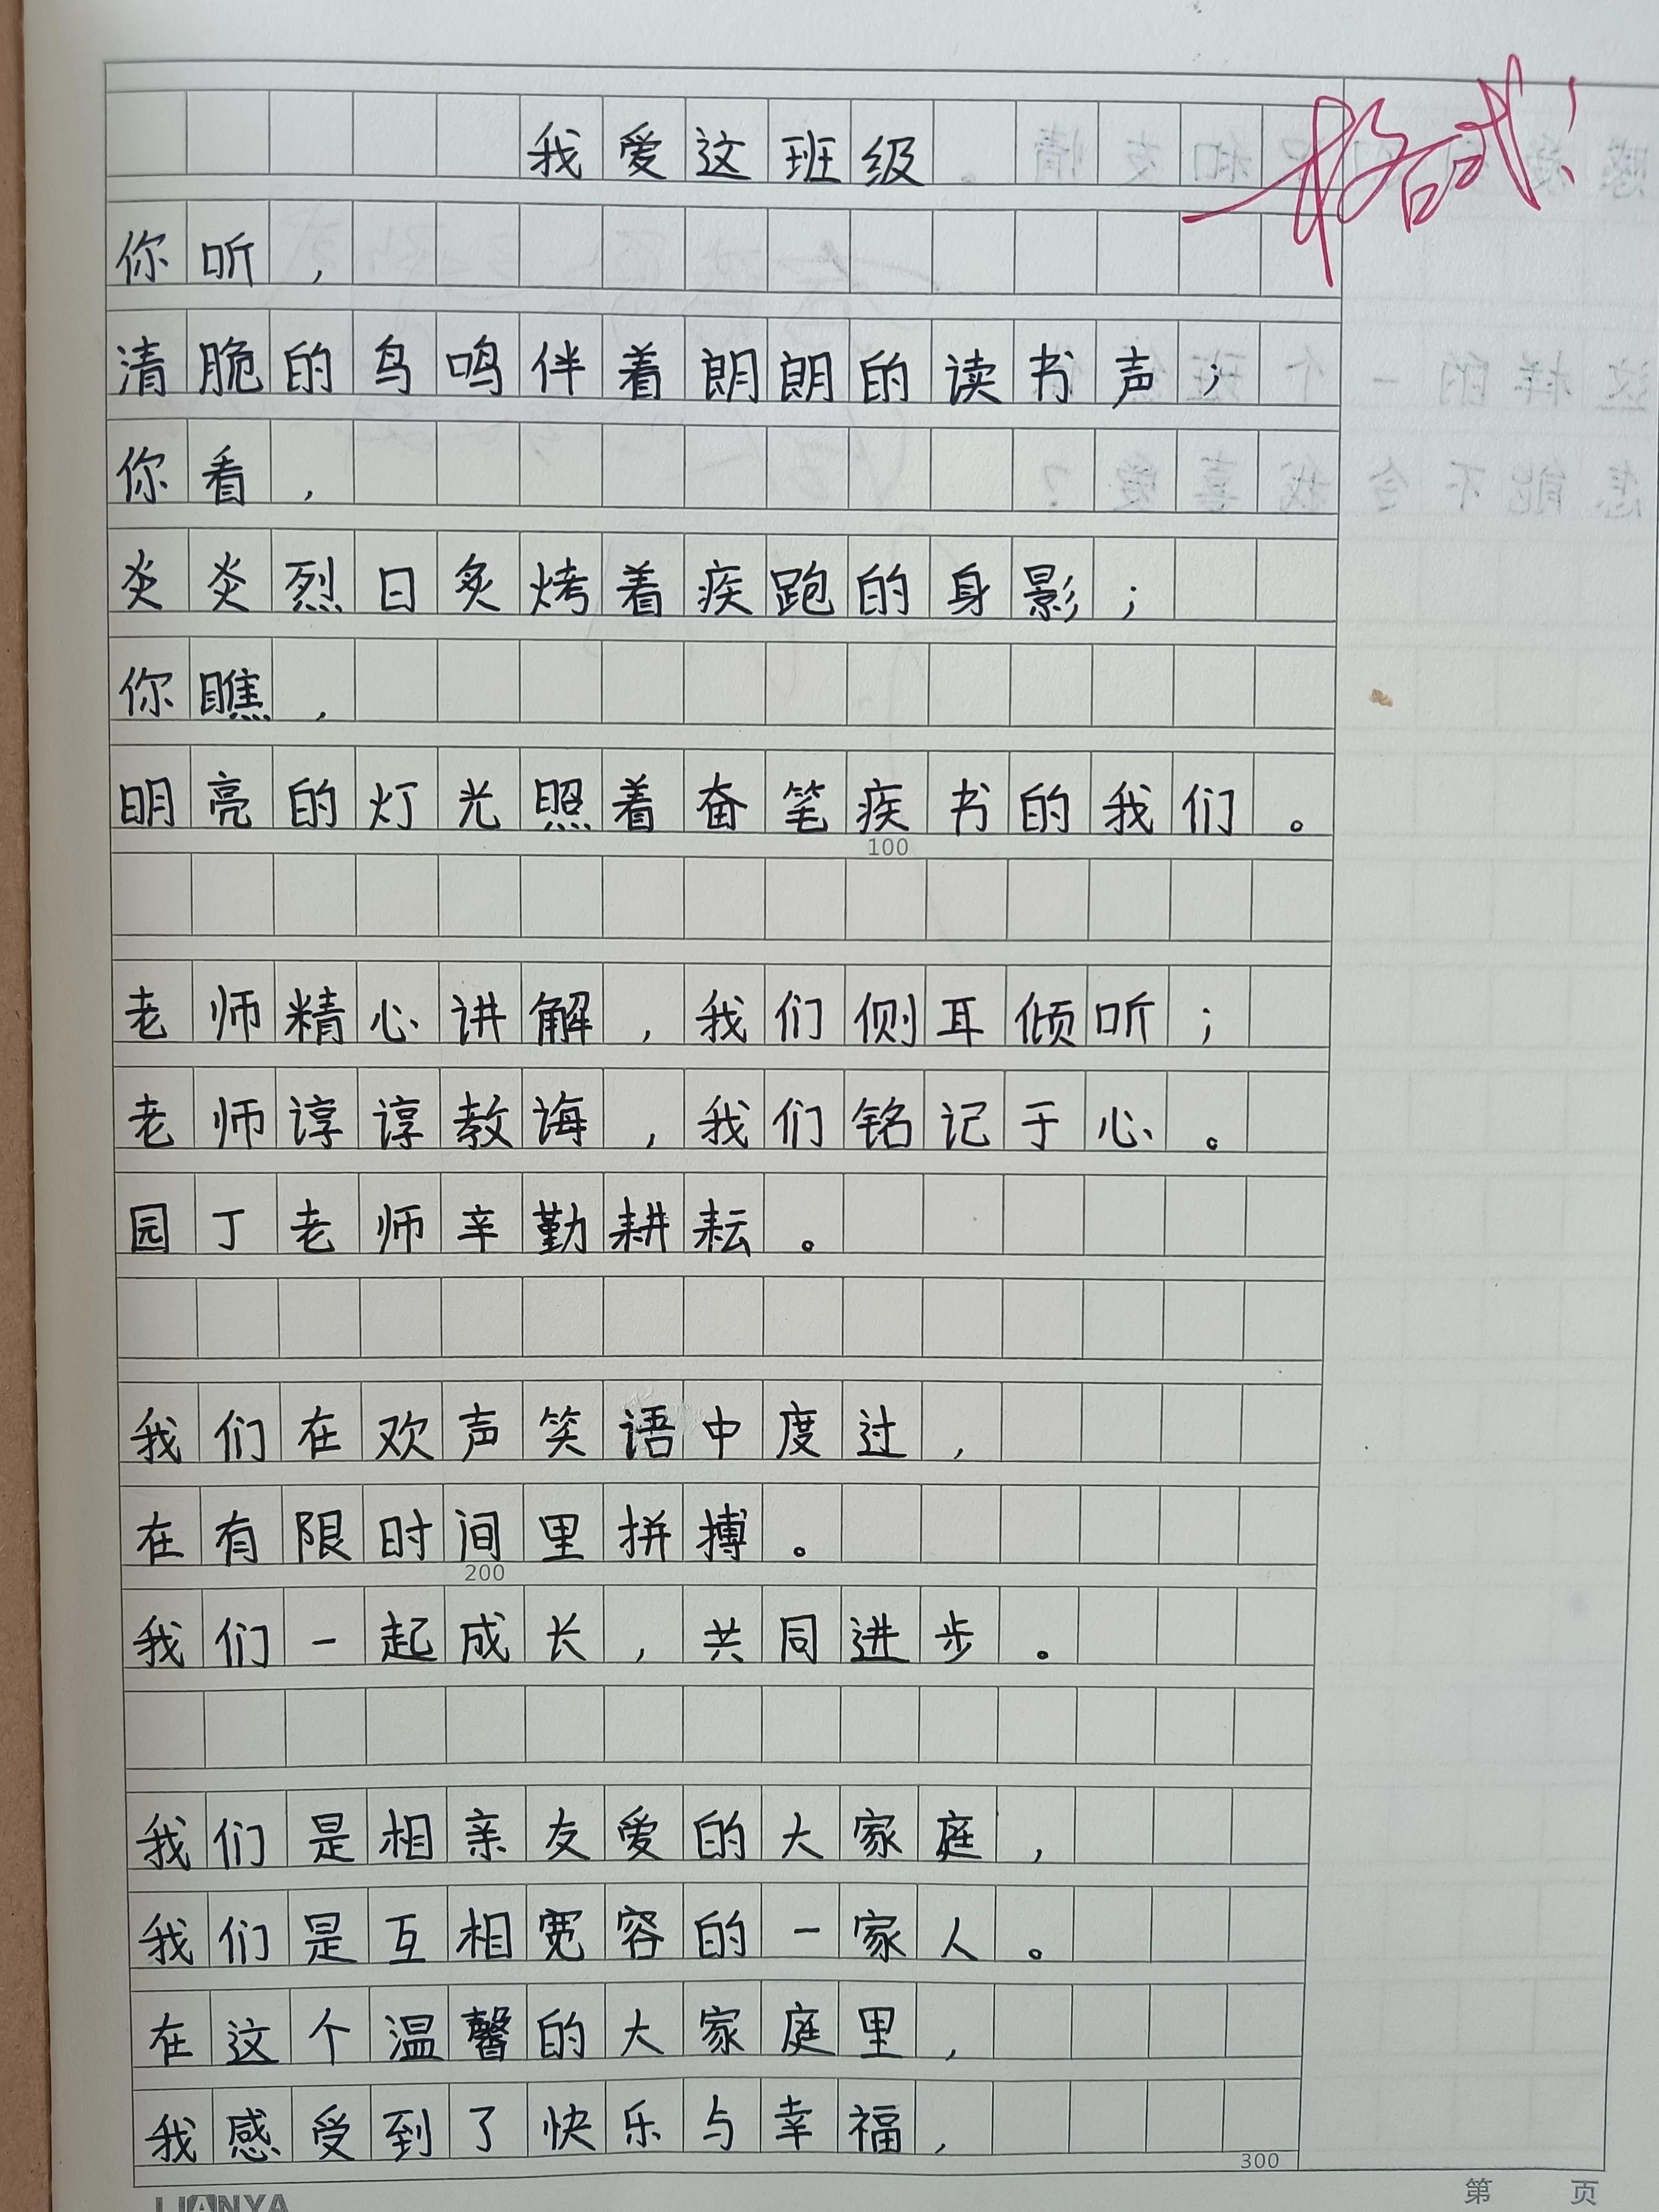 我爱这班级
格式！
你听，
清脆的鸟鸣伴着朗朗的读书声；
你看，
炎炎烈日炙烤着疾跑的身影；
你瞧，
明亮的灯光照着奋笔疾书的我们。
100
老师精心讲解，我们侧耳倾听；
老师谆谆教诲，我们铭记于心。
园丁老师辛勤耕耘。
我们在欢声笑语中度过，
在有限时间里拼搏。
200
我们一起成长，共同进步。
我们是相亲友爱的大家庭，
我们是互相宽容的一家人。
在这个温馨的大家庭里，
我感受到了快乐与幸福，
300
第 页
LIANYA